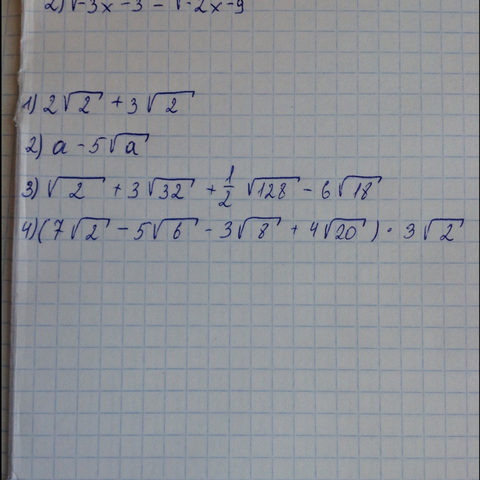 2) √-3x - 3 - √-2x-9
1) 2√2 + 3√2
2) a - 5√a
3) √2 + 3√32 + 1/2 √128 - 6√18
4) (7√2 - 5√6 - 3√8 + 4√20) · 3√2